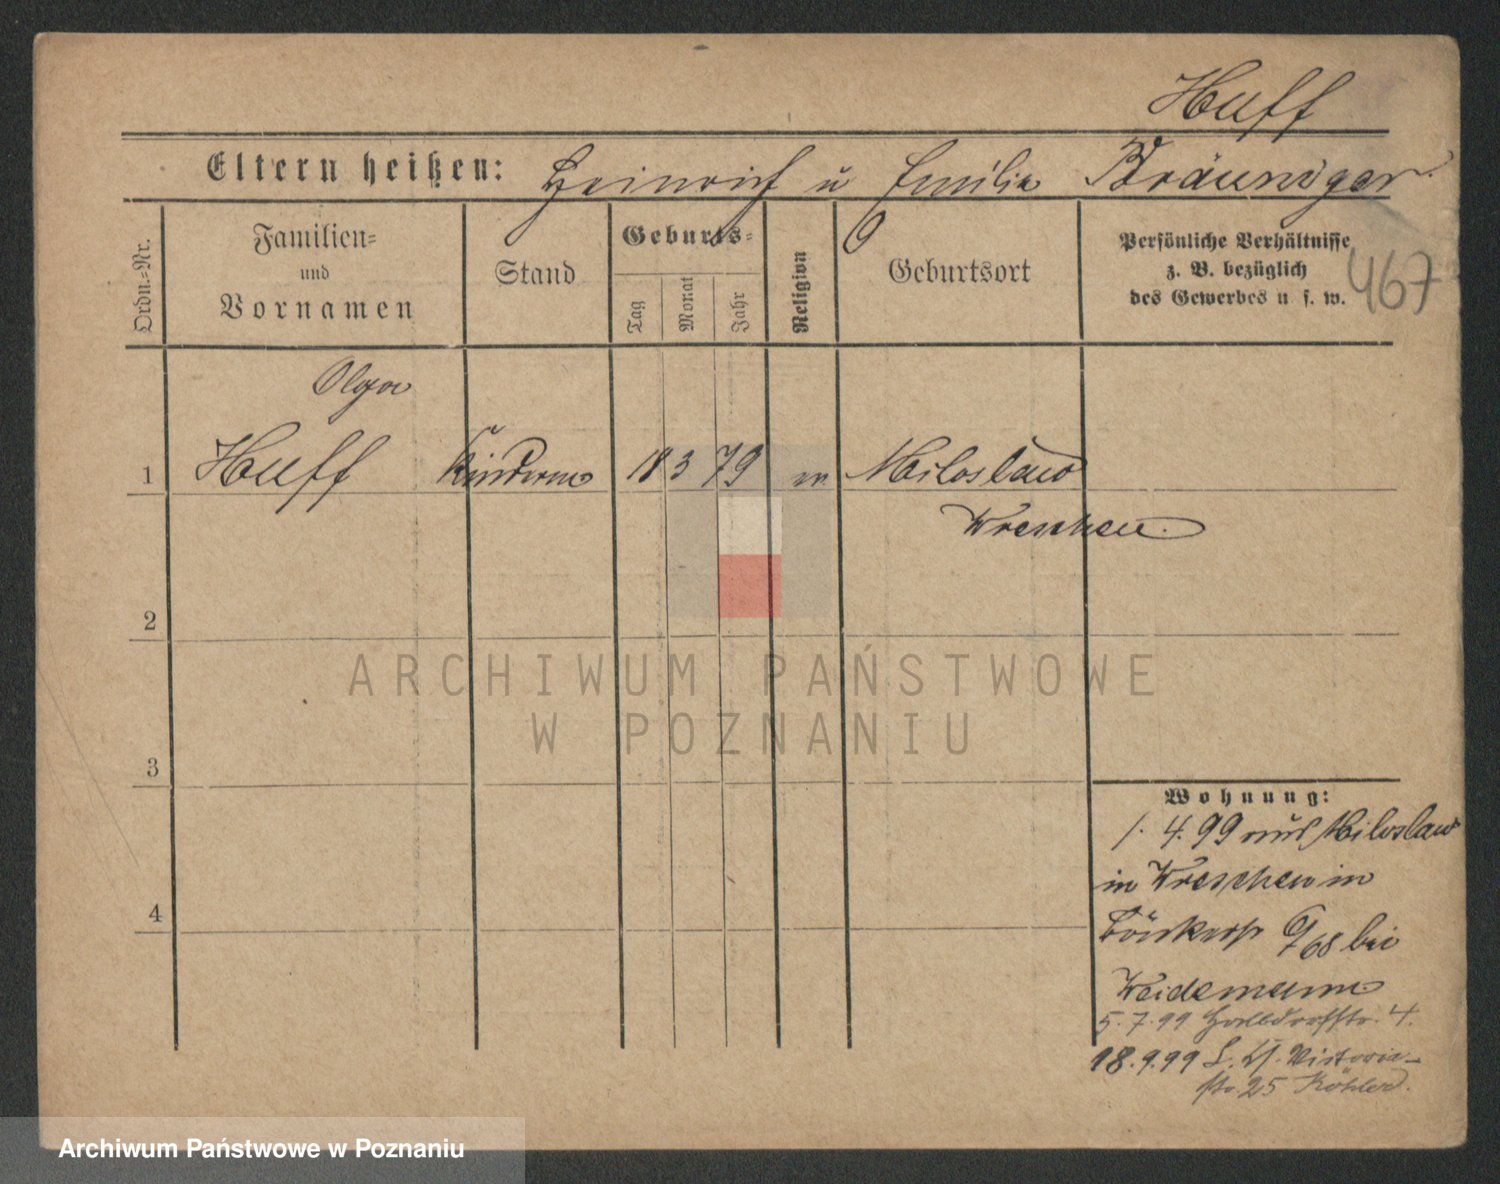 Huff
Eltern heißen: Heinrich u Emilie Bräuniger
Ordn.=Nr.
Familien=
und
Vornamen
Stand
Geburts=
Tag
Monat
Jahr
Religion
Geburtsort
Persönliche Verhältnisse
z. B. bezüglich
des Gewerbes u s. w.
467
Olga
1 Huff 18 3 79 Miloslaw
Wreschen
2
ARCHIWUM PAŃSTWOWE
W POZNANIU
3
Wohnung:
1. 4. 99 aus Miloslaw
in Wreschen in
68 bei
4
Weidemann
5. 7. 99 4.
18. 9. 99 Victoria-
str. 25 Köhler.
Archiwum Państwowe w Poznaniu